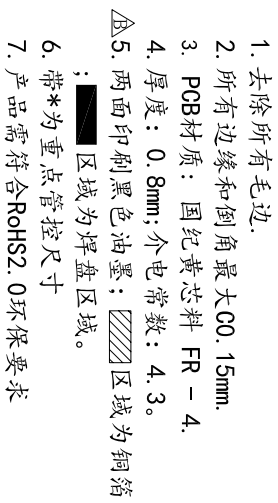 1. 去除所有毛边.
2. 所有边缘和倒角最大C0.15mm.
3. PCB材质: 国纪黄芯料 FR - 4.
4. 厚度: 0.8mm;介电常数: 4.3。
B 5. 两面印刷黑色油墨; 区域为铜箔
; 区域为焊盘区域。
6. 带*为重点管控尺寸
7. 产品需符合RoHS2.0环保要求